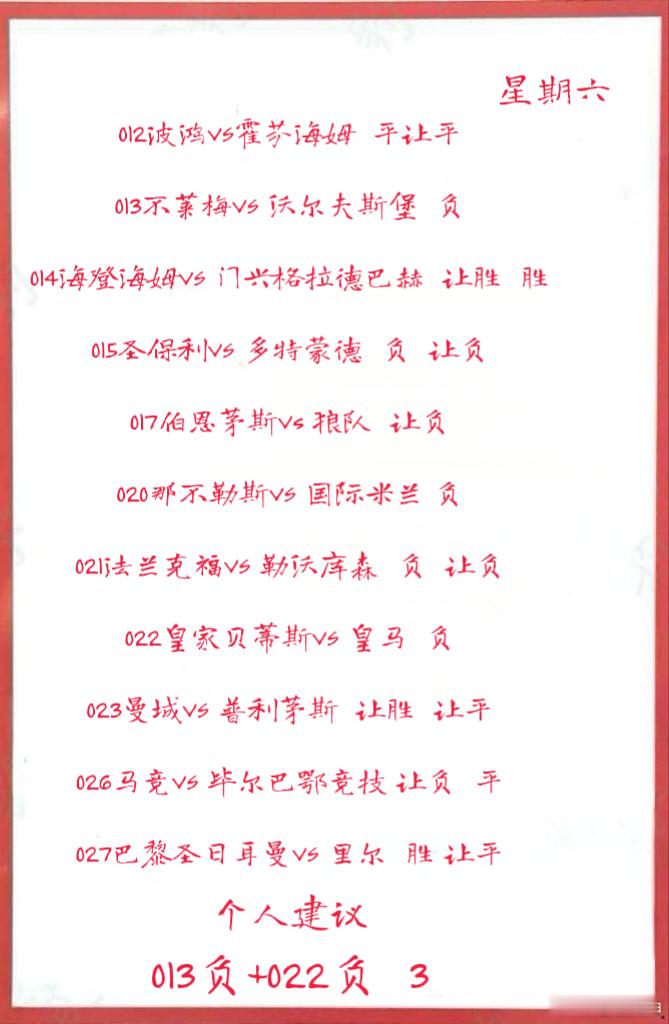 星期六
012波鸿vs霍芬海姆 平让平
013不莱梅vs沃尔夫斯堡 负
014海登海姆vs门兴格拉德巴赫 让胜 胜
015圣保利vs多特蒙德 负 让负
017伯恩茅斯vs狼队 让负
020那不勒斯vs国际米兰 负
021法兰克福vs勒沃库森 负 让负
022皇家贝蒂斯vs皇马 负
023曼城vs普利茅斯 让胜 让平
026马竞vs毕尔巴鄂竞技 让负 平
027巴黎圣日耳曼vs里尔 胜 让平
个人建议
013负+022负 3